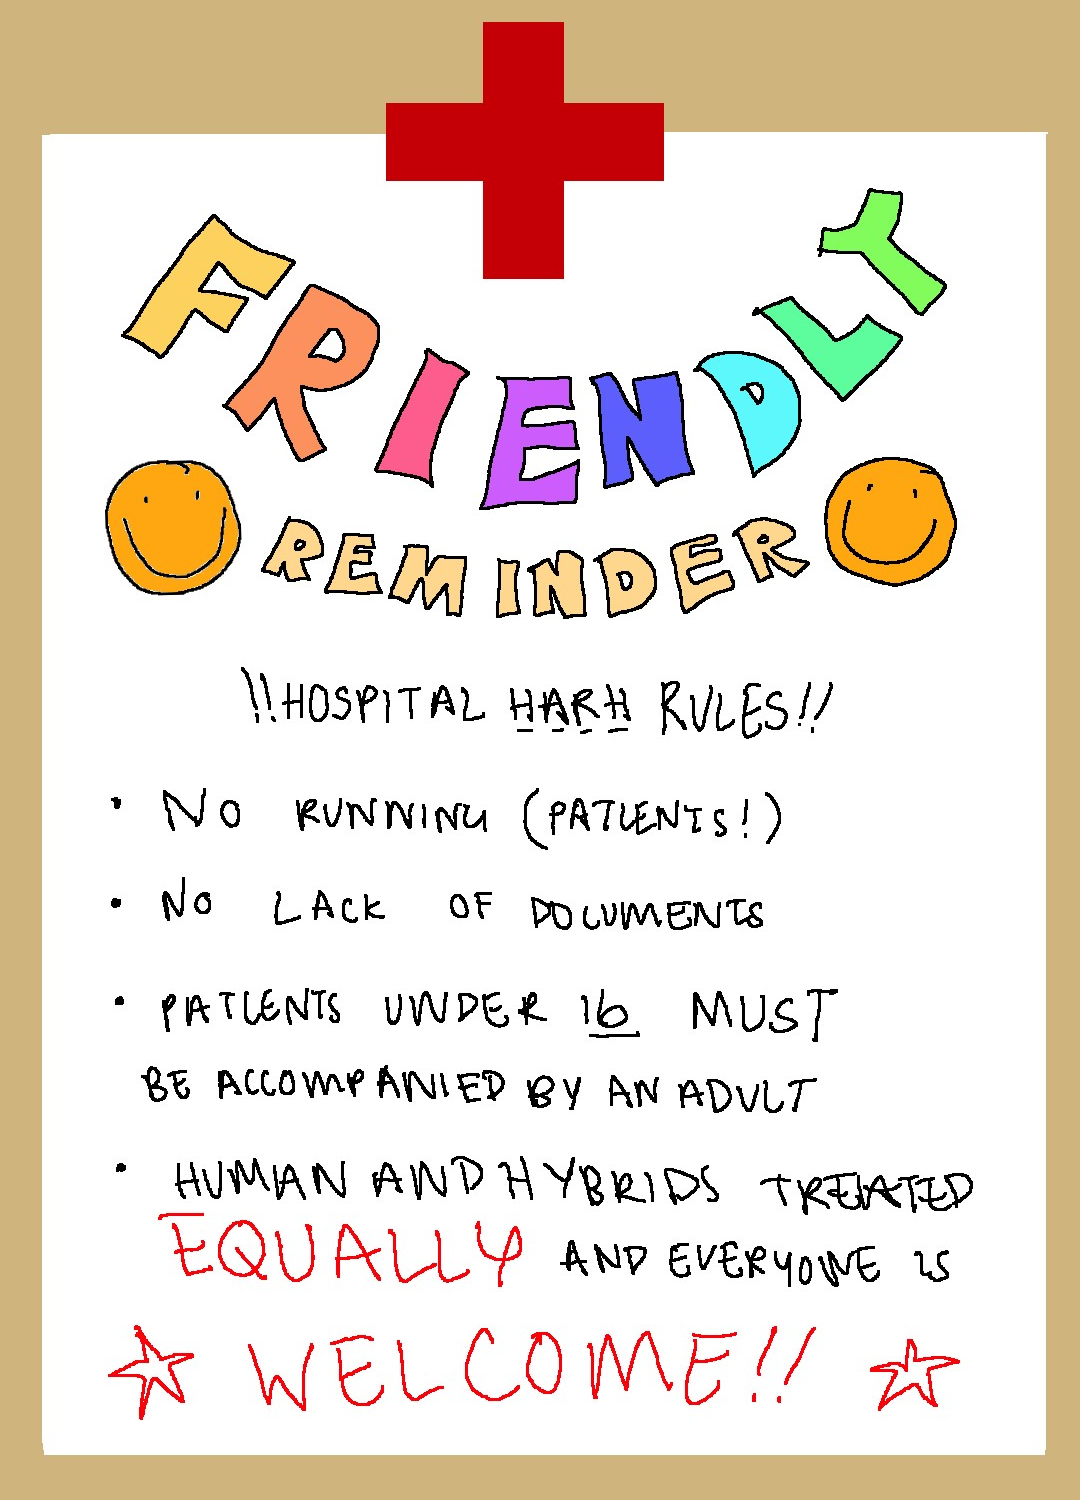 FRIENDLY
REMINDER
!!HOSPITAL HARH RULES!!
• NO RUNNING (PATIENTS!)
• NO LACK OF DOCUMENTS
• PATIENTS UNDER 16 MUST
BE ACCOMPANIED BY AN ADULT
• HUMAN AND HYBRIDS TREATED
EQUALLY AND EVERYONE IS
WELCOME!!